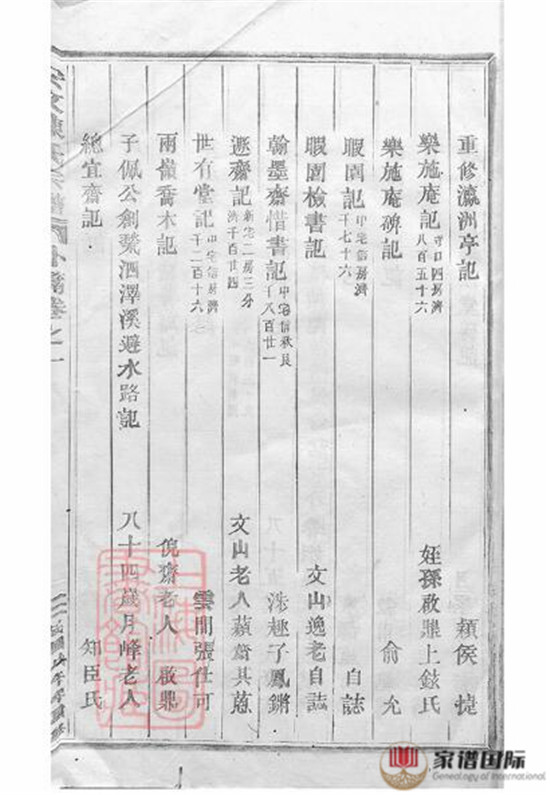 重修瀛洲亭記 穎侯
樂施庵記 守口四房濟八百五十六 姪孫啟鼎上鉉氏
樂施庵碑記 俞允
暇園記 中宅信房濟千七十六 自誌
暇園檢書記 文山逸老自誌
翰墨齋惜書記 中宅信秋艮千八百廿一 洙子鳳鏘
遯齋記 新宅二房三分濟千百廿四 文山老人蘋齋其蒽
世有堂記 中宅信房濟千二百十六 雲間張仕可
雨嶺喬木記 倪齋老人啟鼎
子佩公創甃泗澤溪避水路記 八十四歲月峰老人
總宜齋記 知臣氏
外篇卷之二
家谱国际
Genealogy of International